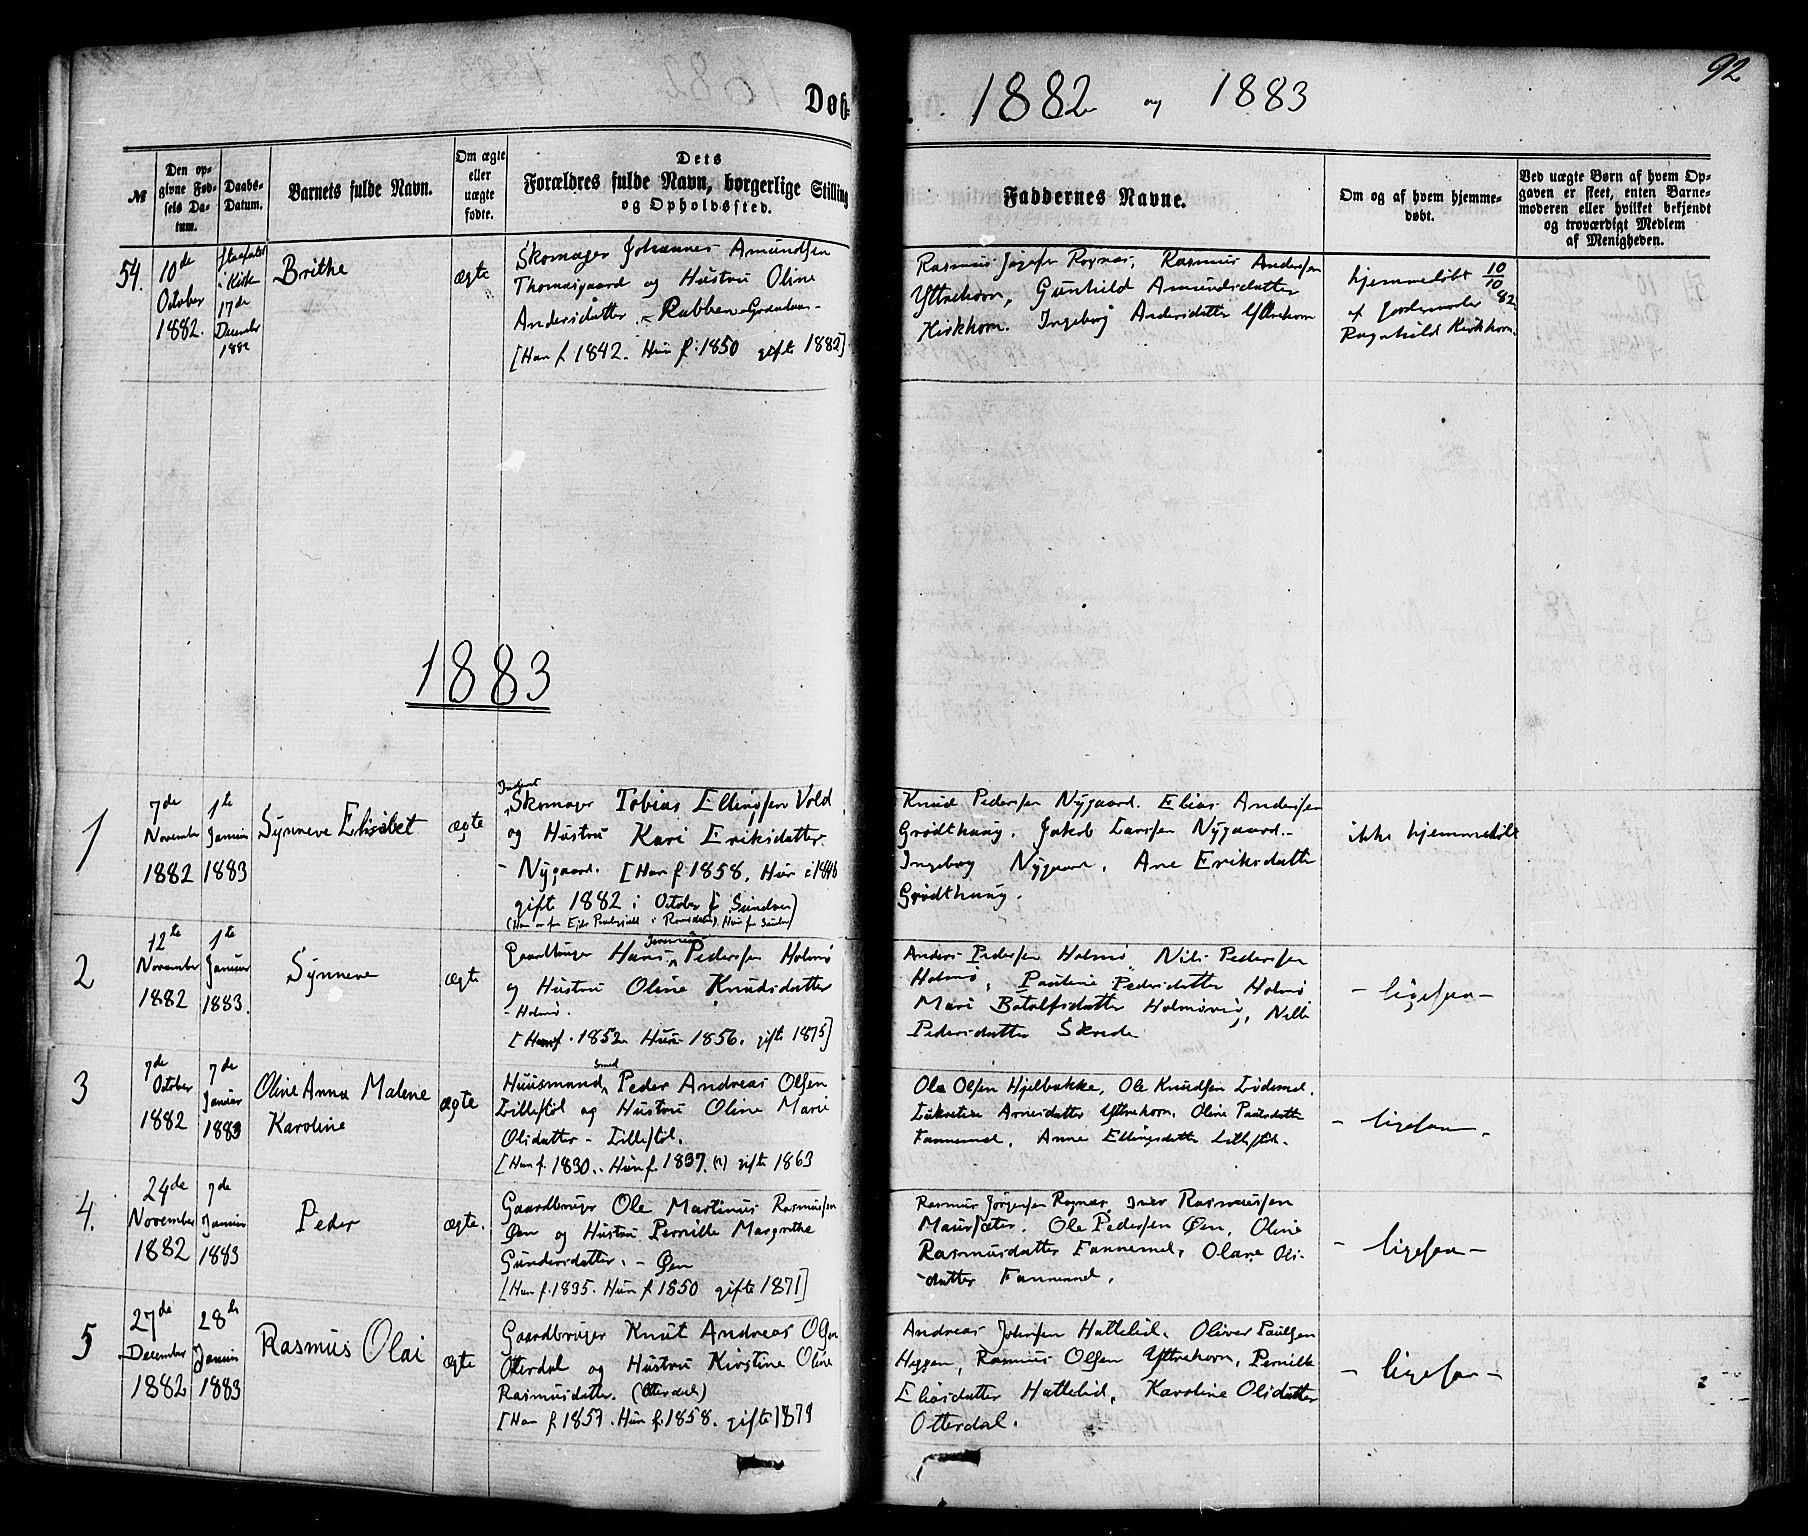 92
Døb-
1882 og 1883
№
Den op-
givne Fød-
sels Da-
tum.
Daabs-
Datum.
Barnets fulde Navn.
Om ægte
eller
uægte
fødte.
Dets
Forældres fulde Navn, borgerlige Stilling
og Opholdssted.
Faddernes Navne.
Om og af hvem hjemme-
døbt.
Ved uægte Børn af hvem Op-
gaven er skeet, enten Barne-
moderen eller hvilket bekjendt
og troværdigt Medlem
af Menigheden.
54.
10de
October
1882.
Kirke
17de
December
1882
Brithe
ægte
Skomager Johannes Amundsen
Thomasgaard og Hustru Oline
Andersdatter
[Han f 1842. Hun f. 1850 gifte 1882]
Rasmus Rognæs, Rasmus Andersen
Yttrehorn, Gunhild Amundsdatter
Kirkhorn. Ingeborg Andersdatter Yttrehorn
hjemmedøbt 10/10 82
af Jordemoder
Ragnhild Kirkhorn.
1883
1
7de
November
1882
1te
Januar
1883
Synneve Elisabet
ægte
Inderst
Skomager Tobias Ellingsen Vold
og Hustru Kari Eriksdatter
- Nygaard. [Han f. 1858. Hun 1846
gifte 1882 i October
Knud Pedersen Nygaard. Elias Andersen
Grødthaug. Jakob Larsen Nygaard.-
Ingeborg Nygaard, Ane Eriksdatter
Grødthaug.
ikke hjemmedøbt
2
12te
November
1882
1te
Januar
1883.
Synneve
ægte
Gaardbruger Hans Pedersen Holmø
og Hustru Oline Knudsdatter
- Holmø.
[Han f. 1852. Hun 1856. gifte 1875]
Anders Pedersen Holmø Nils Pedersen
Holmø, Pauline Pedersdatter Holmø
Mari Botolfsdatter Holmøvig, Nille
Pedersdatter Skrede
- ligesaa -
3
7de
October
1882
7de
Januar
1883
Oline Anna Malene
Karoline
ægte
Huusmand Smed Peder Andreas Olsen
Lillestøl og Hustru Oline Marie
Olsdatter - Lillestøl.
[Han f. 1830. Hun f. 1837. (?) gifte 1863
Ole Olsen Hjelbakke, Ole Knudsen Lødemel.
Lukretia Arnesdatter Yttrehorn, Oline Paulsdatter
Fannemel, Anne Ellingsdatter Lillestøl.
- ligesaa -
4.
24de
November
1882
7de
Januar
1883
Peder
ægte.
Gaardbruger Ole Martinus Rasmussen
Øen og Hustru Pernille Margrethe
Gundersdatter. - Øen
[Han f. 1835. Hun f 1850 gifte 1871]
Rasmus Jørgensen Rognæs, Iver Rasmussen
Maursæter. Ole Pedersen Øen, Oline
Rasmusdatter Fannemel, Olave Ols-
datter Fannemel.
- ligesaa -
5
27de
December
1882
28de
Januar
1883
Rasmus Olai
ægte
Gaardbruger Knut Andreas Olsen
Otterdal og Hustru Kirstine Oline
Rasmusdatter. (Otterdal)
[Han f 1857. Hun f. 1858. gifte 1879
Andreas Johnsen Hattelid. Oliver Paulsen
Heggen, Rasmus Olsen Yttrehorn, Pernille
Eliasdatter Hattelid, Karoline Olsdatter
Otterdal.
- ligesaa -